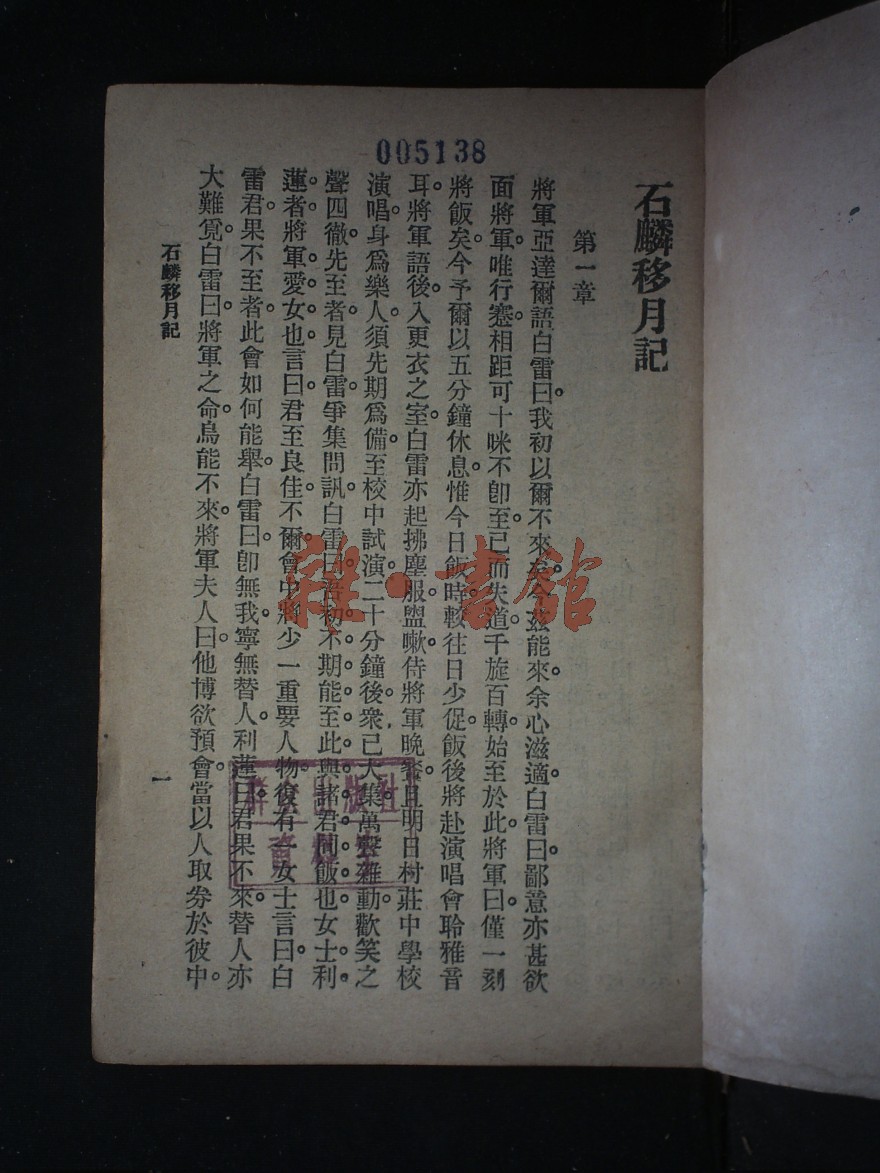 005138
石麟移月記
第一章
將軍亞達爾語白雷曰。我初以爾不來矣。今茲能來。余心滋適。白雷曰。鄙意亦甚欲
面將軍。唯行蹇。相距可十咪。不卽至。已而失道。千旋百轉。始至於此。將軍曰。僅一刻
將飯矣。今予爾以五分鐘休息。惟今日飯時。較往日少促。飯後將赴演唱會聆雅音
耳。將軍語後。入更衣之室。白雷亦起拂塵服盥嗽。侍將軍晚餐。且明日村莊中學校
演唱。身爲樂人。須先期爲備。至校中試演。二十分鐘後。衆已大集。萬聲雜動。歡笑之
聲四徹。先至者見白雷。爭集問訊。白雷曰。吾初不期能至此。與諸君同飯也。女士利
蓮者。將軍愛女也。言曰。君至良佳。不爾。會中將少一重要人物。復有一女士言曰。白
雷君果不至者。此會如何能舉。白雷曰。卽無我。寧無替人。利蓮曰。君果不來。替人亦
大難覓。白雷曰。將軍之命。烏能不來。將軍夫人曰。他博欲預會。當以人取券於彼中。
石麟移月記
一
雜·書館